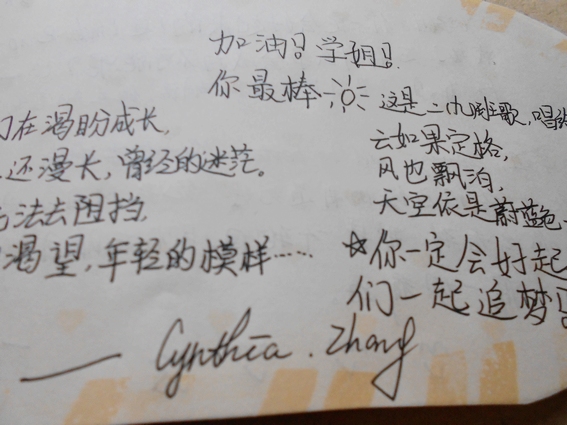 加油!学姐!
你最棒
在渴盼成长,
还漫长,曾经的迷茫。
法去阻挡,
渴望,年轻的模样……
这是二九周主歌,唱
云如果定格,
风也飘泊,
天空依是蔚蓝色
☆你一定会好起
们一起追梦!
—— Cynthia. Zhang